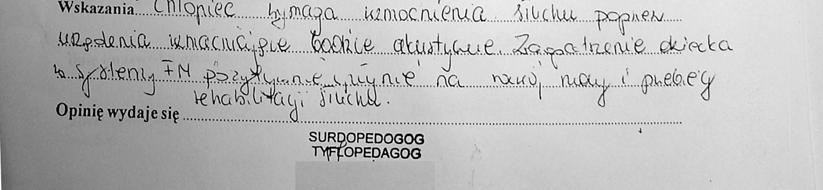 Wskazania Chłopiec wymaga wzmocnienia słuchu poprzez
urządzenia wzmacniające bodźce akustyczne. Zaopatrzenie dziecka
w systemy FM pozytywnie wpłynie na rozwój mowy i przebieg
rehabilitacji słuchu.
Opinię wydaje się
SURDOPEDOGOG
TYFLOPEDAGOG